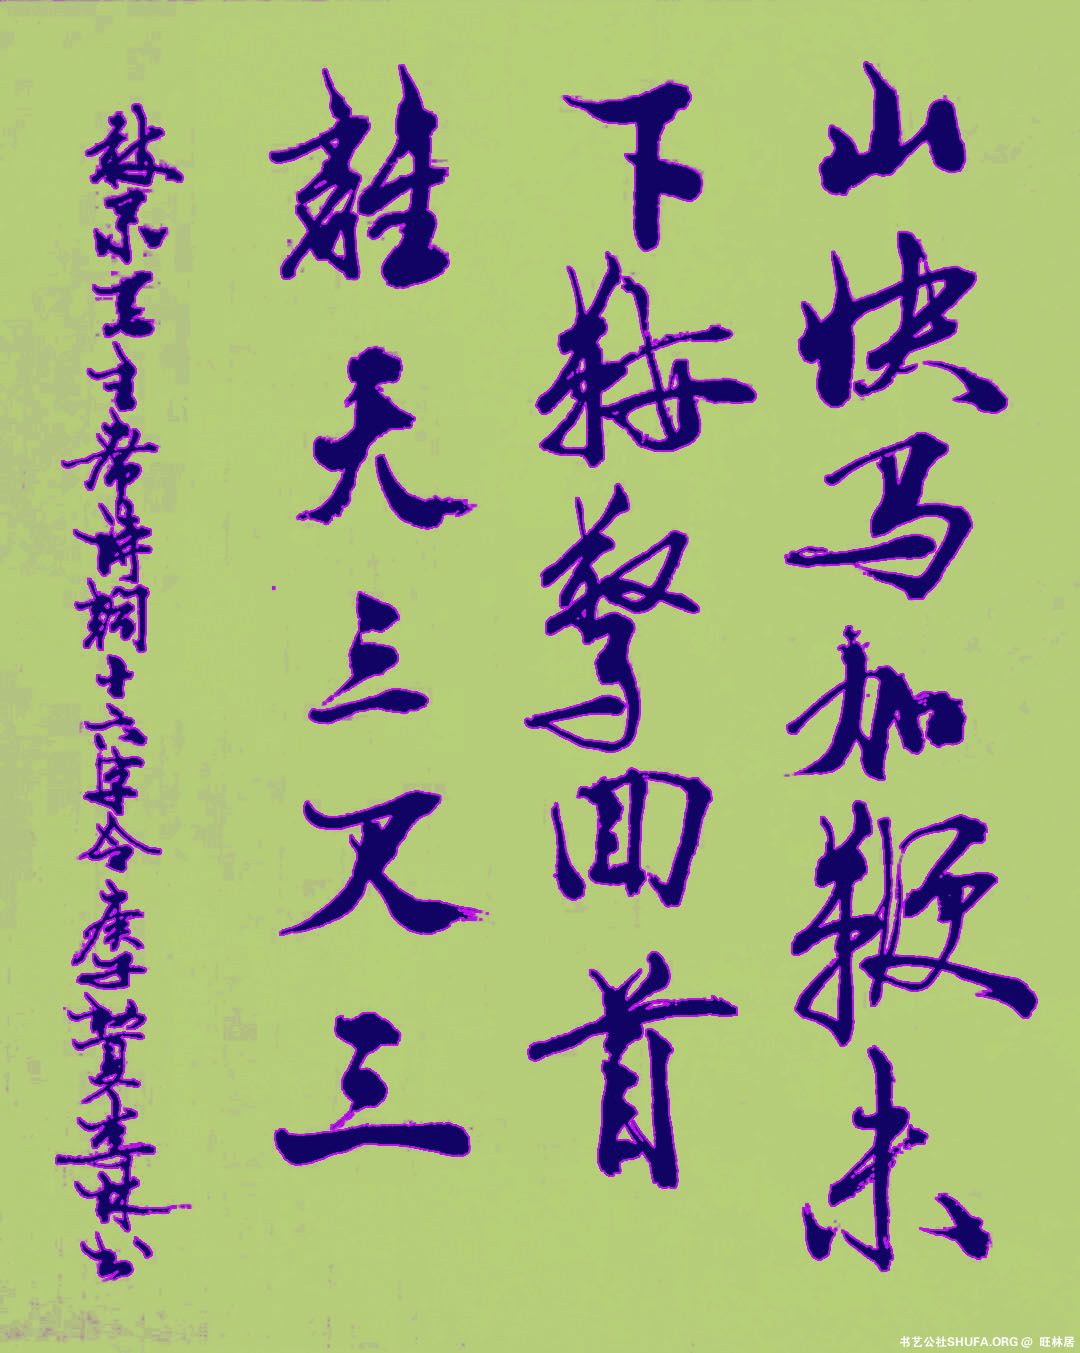 山快马加鞭未
下鞍驚回首
離天三尺三
敬录毛主席诗词十六字令庚子夏李林书
书艺公社SHUFA.ORG @ 旺林居